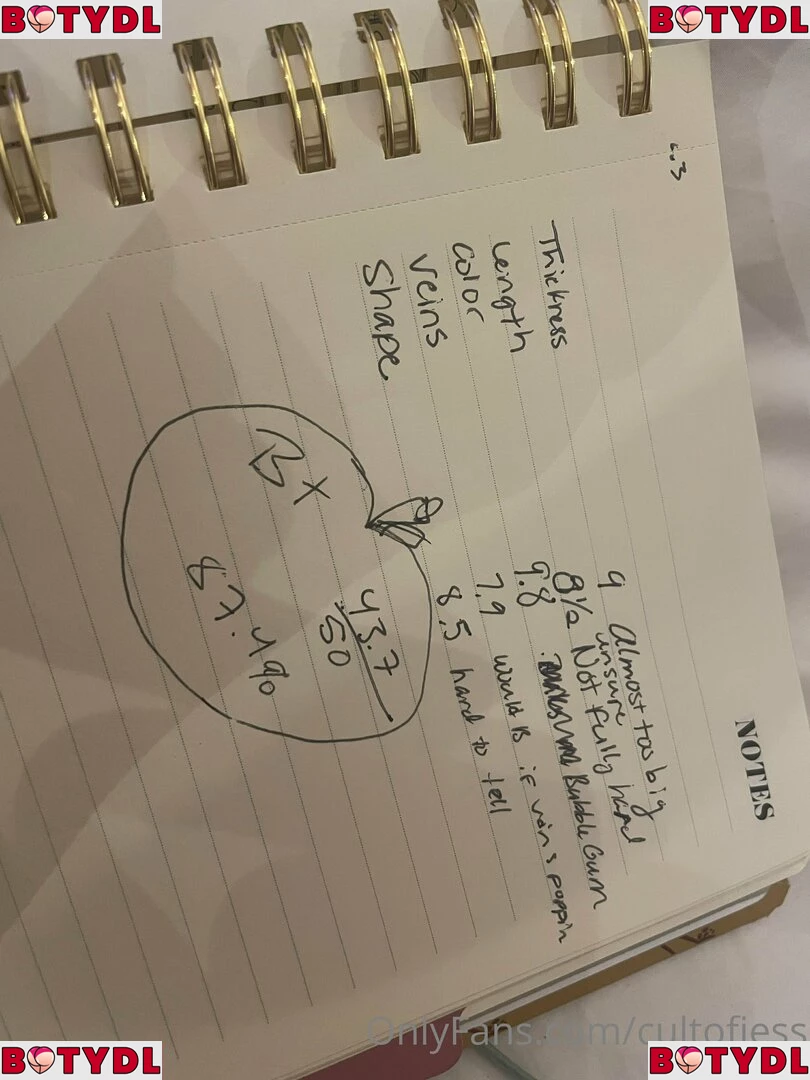 BOTYDL
BOTYDL
NOTES
Thickness 9 Almost too big
unsure
Length 8½ Not fully hard
Color 9.8 Bubble Gum
Veins 7.9 would B if veins poppin
Shape 8.5 hard to tell
43.7
50
B+
87.4%
OnlyFans.com/cultofjess
BOTYDL
BOTYDL